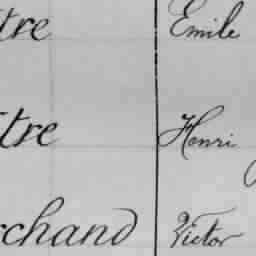 tre Emile
tre Henri
rchand Victor